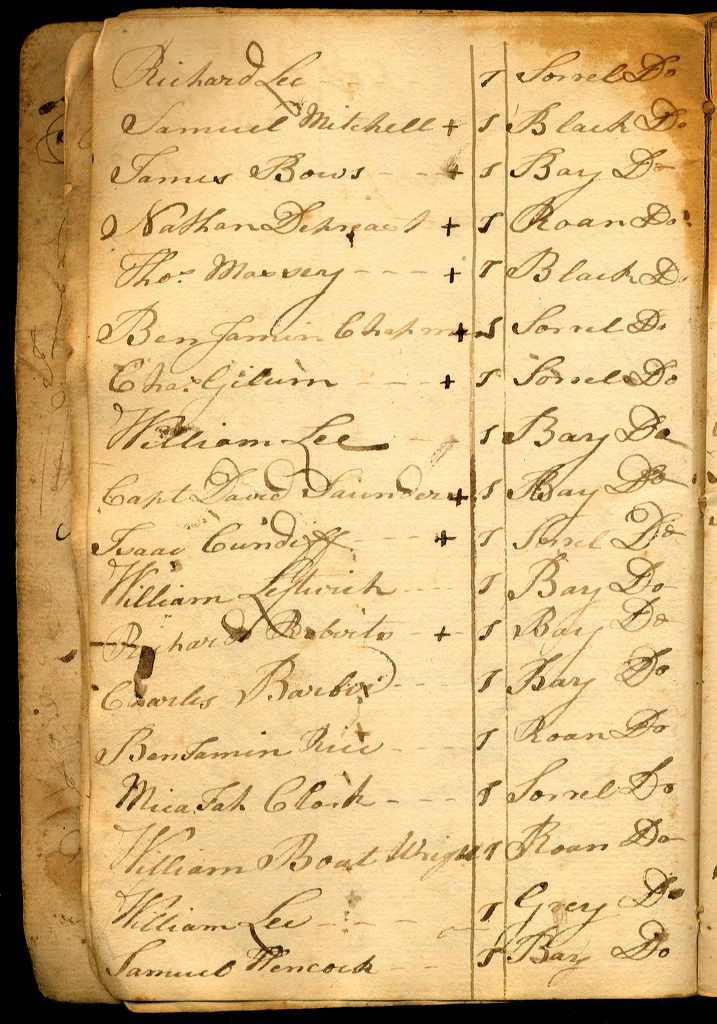 Richard Lee - - - 1 Sorrel Do
Samuel Mitchell + 1 Black Do
James Bows - - + 1 Bay Do
Nathan Dehreast + 1 Roan Do
Thos. Massey - - - + 1 Black Do
Benjamin Chapman + 1 Sorrel Do
Chas. Gilum - - - + 1 Sorrel Do
William Lee - 1 Bay Do
Capt David Saunders + 1 Bay Do
Isaac Cundiff - - - + 1 Sorrel Do
William Leftwich - - - 1 Bay Do
Richard Roberts - + - 1 Bay Do
Charles Barber - - - 1 Bay Do
Benjamin Rice - - - 1 Roan Do
Micajah Clark - - - 1 Sorrel Do
William Boat Wright 1 Roan Do
William Lee - - - - 1 Grey Do
Samuel Hencock - - 1 Bay Do